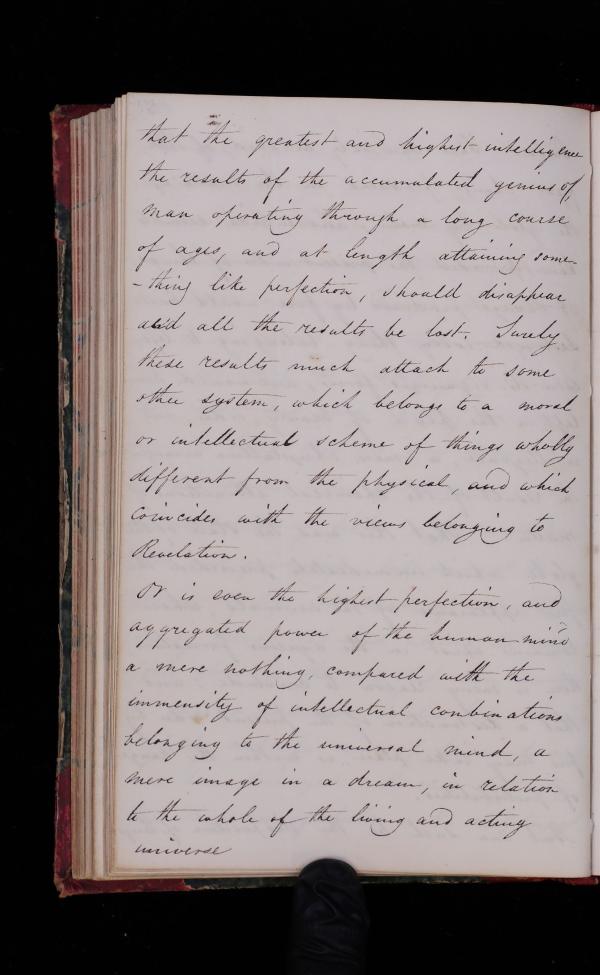 that the greatest and highest intelligence
the results of the accumulated genius of
man operating through a long course
of ages, and at length attaining some-
-thing like perfection, should disappear
and all the results be lost. Surely
these results much attach to some
other system, which belongs to a moral
or intellectual scheme of things wholly
different from the physical, and which
coincides with the views belonging to
Revelation.
Or is even the highest perfection, and
aggregated power of the human mind
a mere nothing, compared with the
immensity of intellectual combinations
belonging to the universal mind, a
mere image in a dream, in relation
to the whole of the living and acting
universe